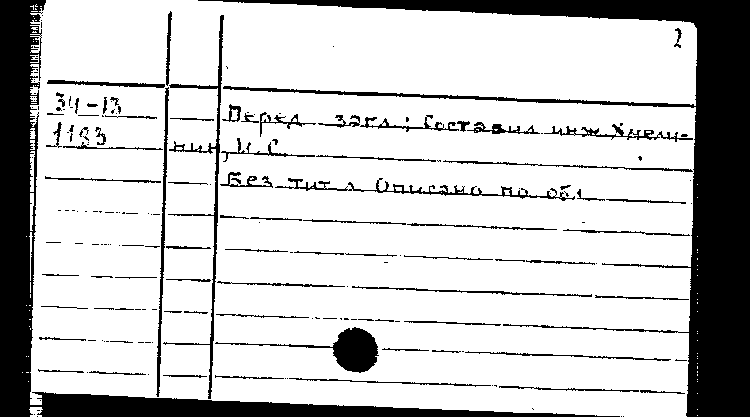 2
34-13
1193
Перед загл.: Составил инж. Хмели-
нин, И. С.
Без тит л Описано по обл